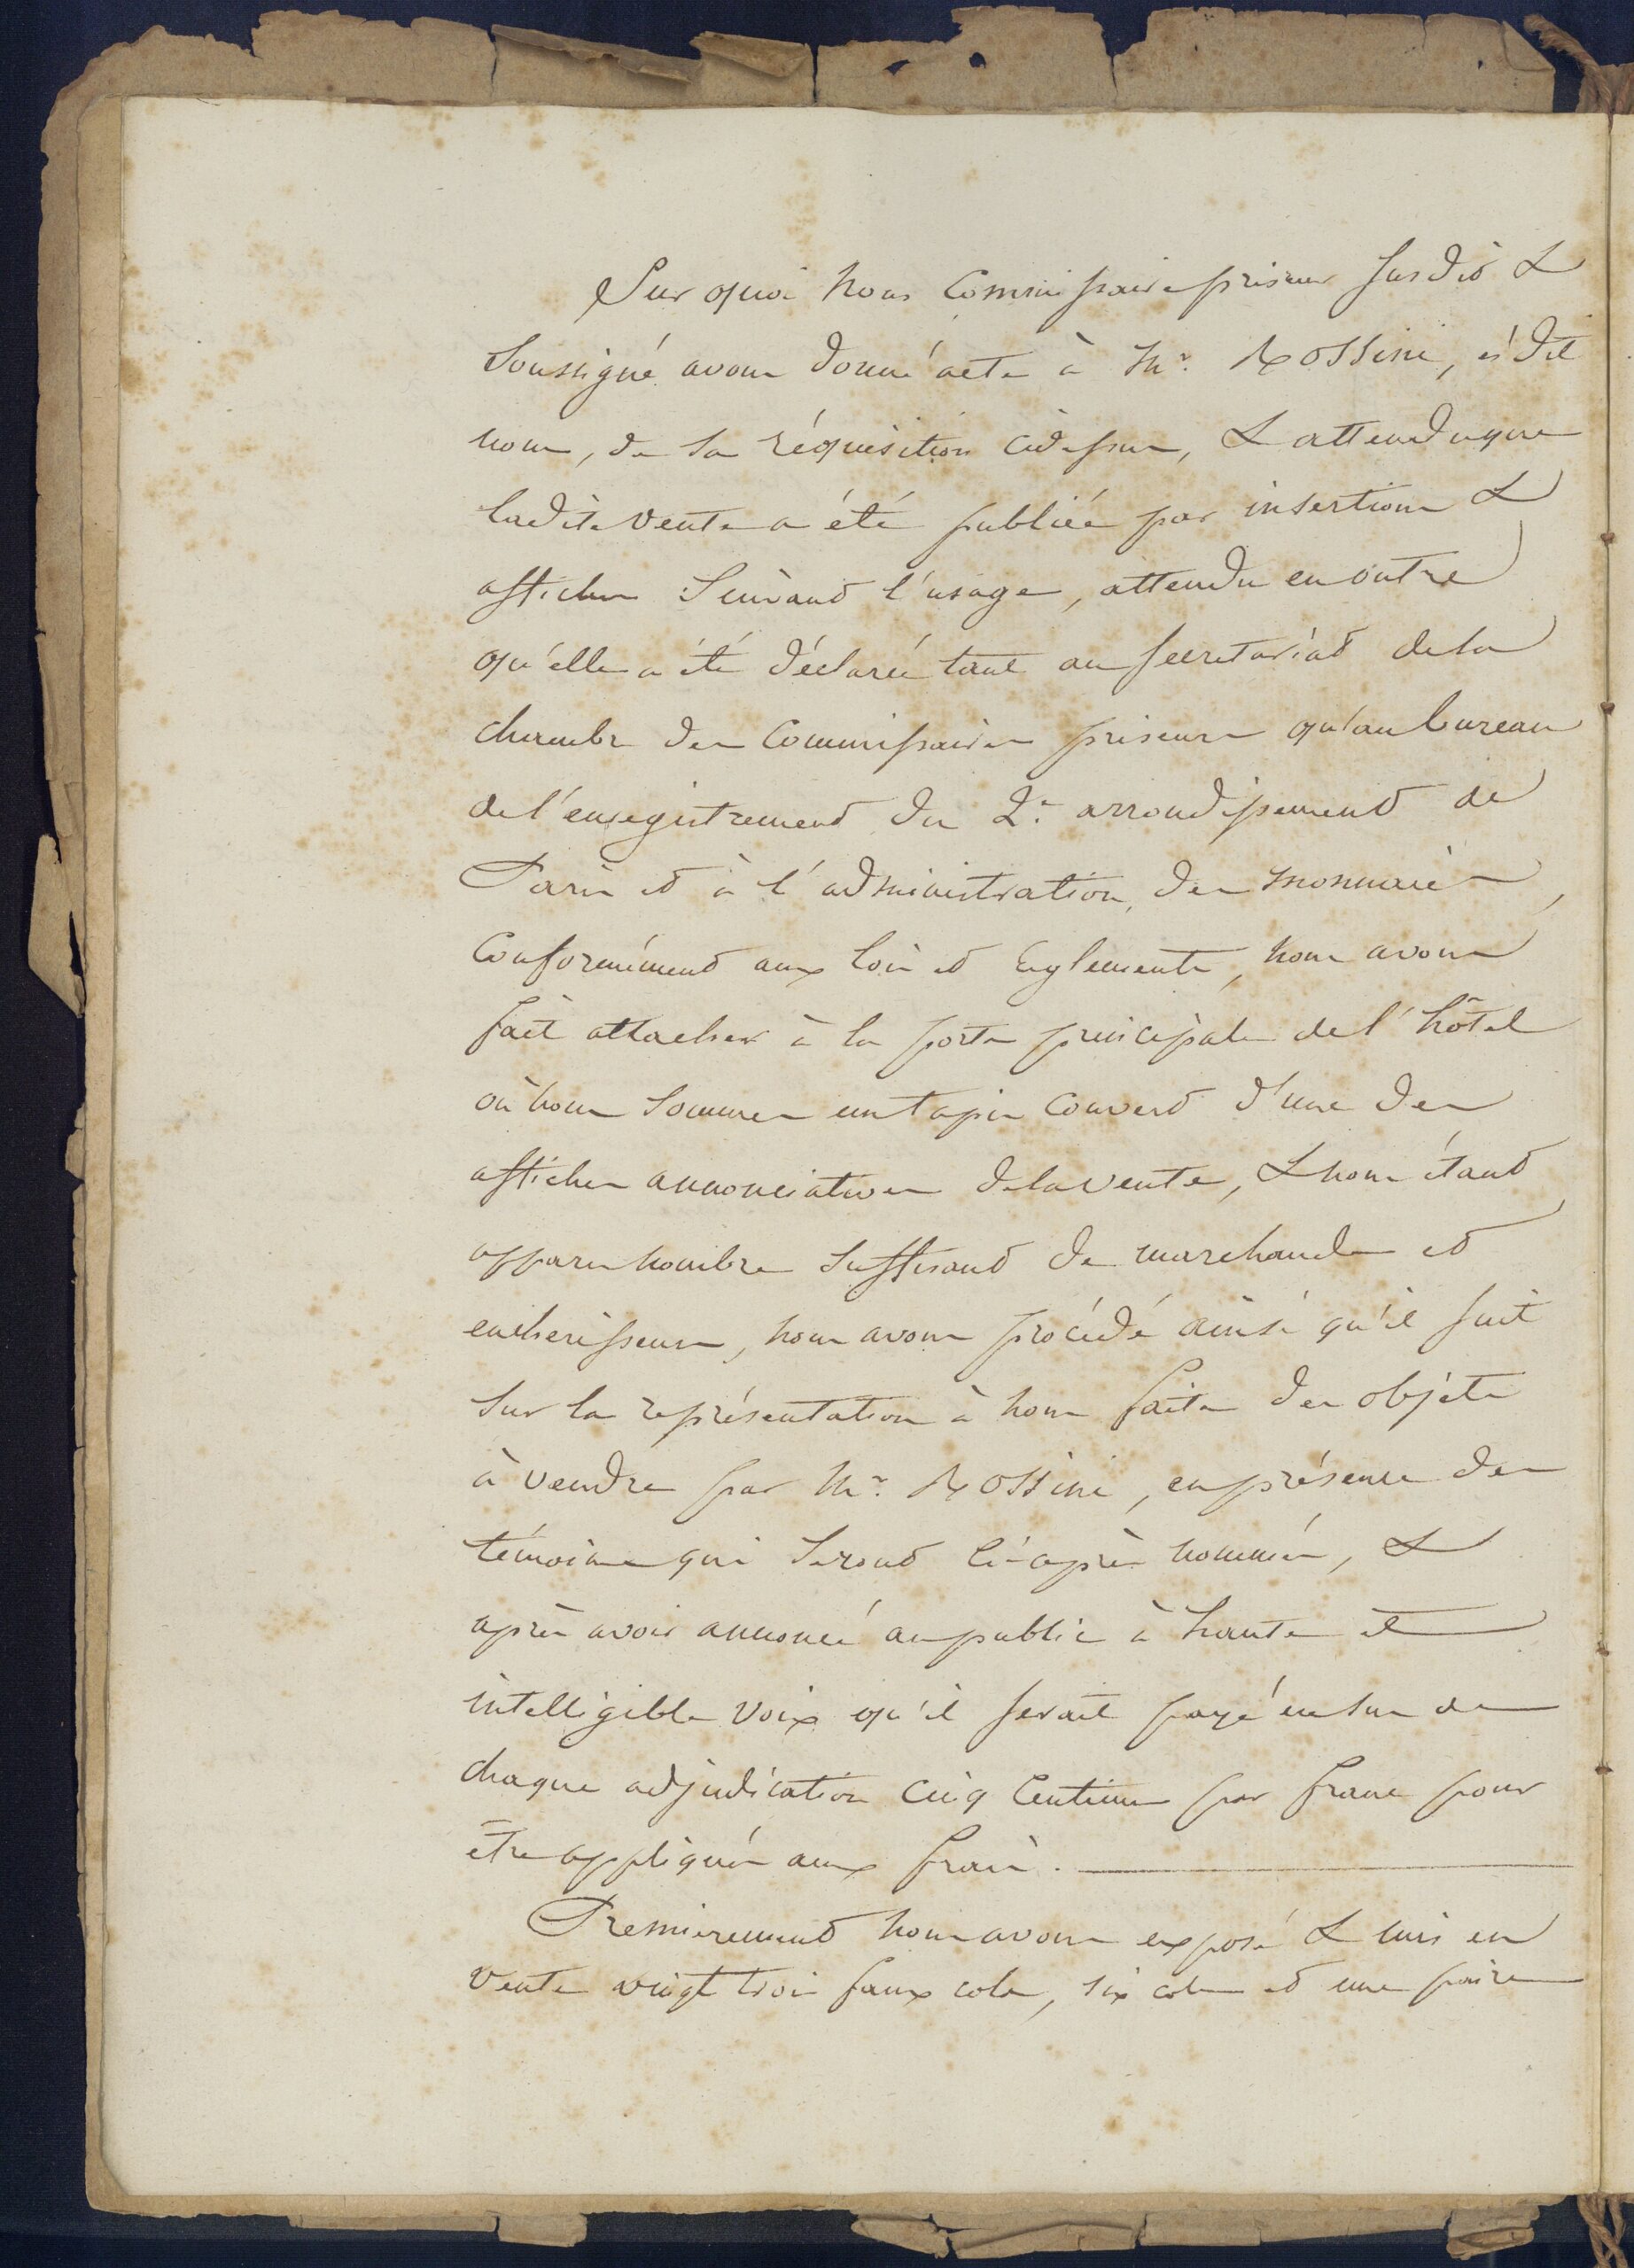 Sur quoi nous Commissaire priseur susdit &
soussigné avons donné acte à Mr. Rossini, ès dit
nom, de sa réquisition cidessus, & attendu que
ladite vente a été publiée par insertions &
affiches suivant l'usage, attendu en outre
qu'elle a été déclarée tant au secretariat de la
chambre des Commissaires priseurs qu'au bureau
de l'enregistrement du 2e. arrondissement de
Paris et à l'administration des monnaies,
Conformément aux lois et règlements, nous avons
fait attacher à la porte principale de l'hôtel
où nous sommes un tapis couvert d'une des
affiches annonciatives de la vente, & nous étant
apparu nombre suffisant de marchands et
enchérisseurs, nous avons procédé ainsi qu'il suit
sur la représentation à nous faite des objets
à vendre par Mr. Rossini, en présence des
témoins qui seront ci-après nommés, &
après avoir annoncé au public à haute et
intelligible voix qu'il serait payé en sus de
chaque adjudication cinq centimes par franc pour
être appliqués aux frais.
Premierement nous avons exposé & mis en
vente vingt trois faux cols, six cols et une paire